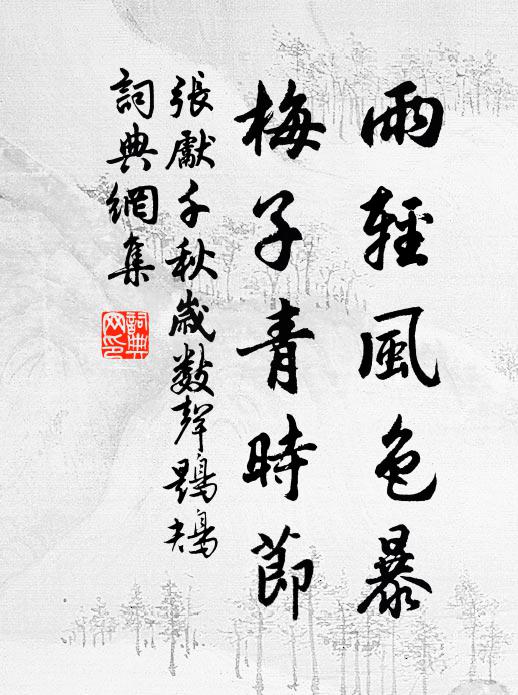 雨輕風色暴
梅子青時節
張獻千秋歲數聲鶗鴂
詞典網集
詞典
网印